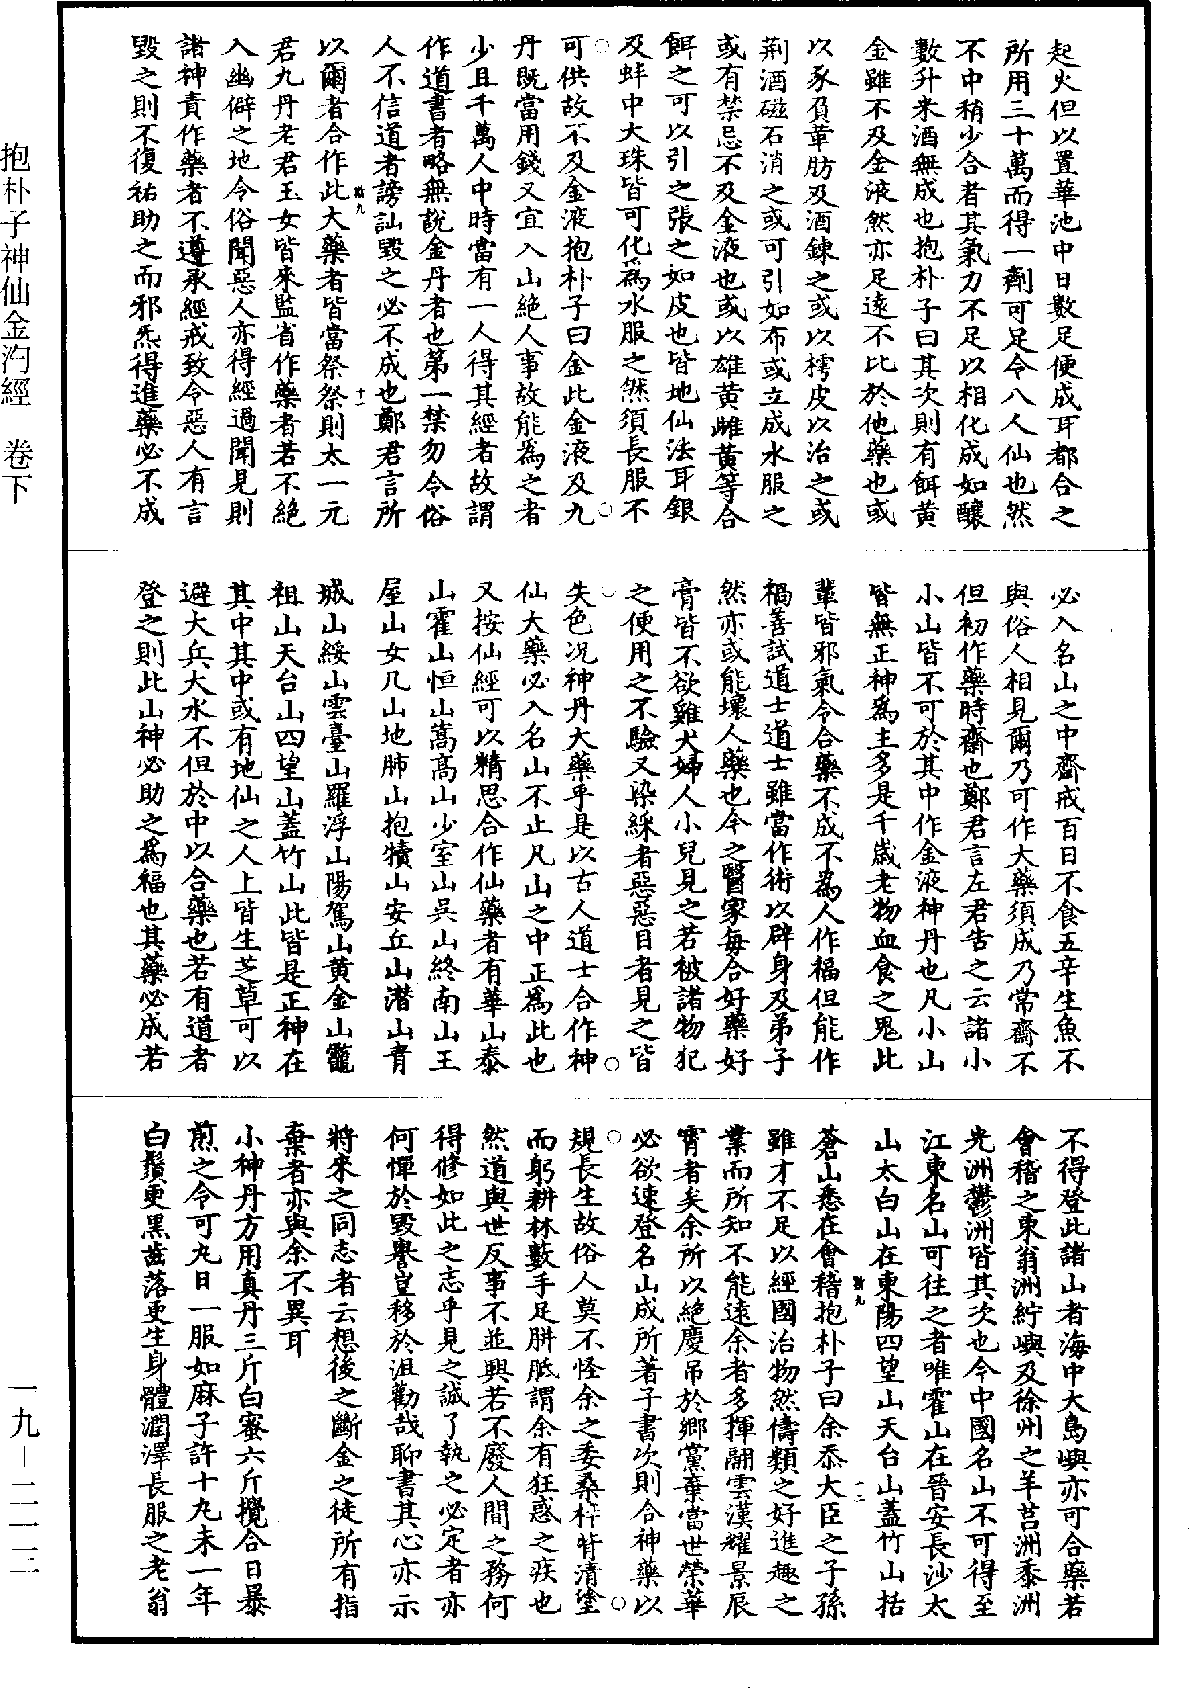 起火但以置華池中日數足便成耳都合之
所用三十萬而得一劑可足令八人仙也然
不中稍少合者其氣力不足以相化成如釀
數升米酒無成也抱朴子曰其次則有餌黃
金雖不及金液然亦足遠不比於他藥也或
以豕負革肪及酒鍊之或以樗皮以治之或
荊酒磁石消之或可引如布或立成水服之
或有禁忌不及金液也或以雄黃雌黃等合
餌之可以引之張之如皮也皆地仙法耳銀
及蚌中大珠皆可化為水服之然須長服不
可供故不及金液抱朴子曰金此金液及九
丹既當用錢又宜入山絕人事故能為之者
少且千萬人中時當有一人得其經者故謂
作道書者略無說金丹者也第一禁勿令俗
人不信道者謗訕毀之必不成也鄭君言所
以爾者合作此大藥者皆當祭祭則太一元
君九丹老君玉女皆來監省作藥者若不絕
入幽僻之地令俗聞惡人亦得經過聞見則
諸神責作藥者不遵承經戒致令惡人有言
毀之則不復祐助之而邪炁得進藥必不成
必入名山之中齋戒百日不食五辛生魚不
與俗人相見爾乃可作大藥須成乃常齋不
但初作藥時齋也鄭君言左君告之云諸小
小山皆不可於其中作金液神丹也凡小山
皆無正神為主多是千歲老物血食之鬼此
輩皆邪氣令合藥不成不為人作福但能作
禍善試道士道士雖當作術以辟身及弟子
然亦或能壞人藥也今之醫家每合好藥好
膏皆不欲雞犬婦人小兒見之若被諸物犯
之便用之不驗又染綵者惡惡目者見之皆
失色況神丹大藥乎是以古人道士合作神
仙大藥必入名山不止凡山之中正為此也
又按仙經可以精思合作仙藥者有華山泰
山霍山恒山嵩高山少室山吳山終南山王
屋山女几山地肺山抱犢山安丘山潛山青
城山綏山雲臺山羅浮山陽駕山黃金山鼈
祖山天台山四望山蓋竹山此皆是正神在
其中其中或有地仙之人上皆生芝草可以
避大兵大水不但於中以合藥也若有道者
登之則此山神必助之為福也其藥必成若
不得登此諸山者海中大島嶼亦可合藥若
會稽之東翁洲紵嶼及徐州之羊莒洲黍洲
光洲鬱洲皆其次也今中國名山不可得至
江東名山可往之者唯霍山在晉安長沙太
山太白山在東陽四望山天台山蓋竹山括
蒼山悉在會稽抱朴子曰余忝大臣之子孫
雖才不足以經國治物然儔類之好進趣之
業而所知不能遠余者多揮翮雲漢耀景辰
霄者矣余所以絕慶吊於鄉黨棄當世榮華
必欲速登名山成所著子書次則合神藥以
規長生故俗人莫不怪余之委桑梓背清塗
而躬耕林藪手足胼胝謂余有狂惑之疾也
然道與世反事不並興若不廢人間之務何
得修如此之志乎見之誠了執之必定者亦
何憚於毀譽豈移於沮勸哉聊書其心亦示
將來之同志者云想後之斷金之徒所有指
棄者亦與余不異耳
小神丹方用真丹三斤白蜜六斤攪合日暴
煎之令可丸日一服如麻子許十丸未一年
白鬚更黑齒落更生身體潤澤長服之老翁
抱朴子神仙金汋經　卷下
一九－二一二